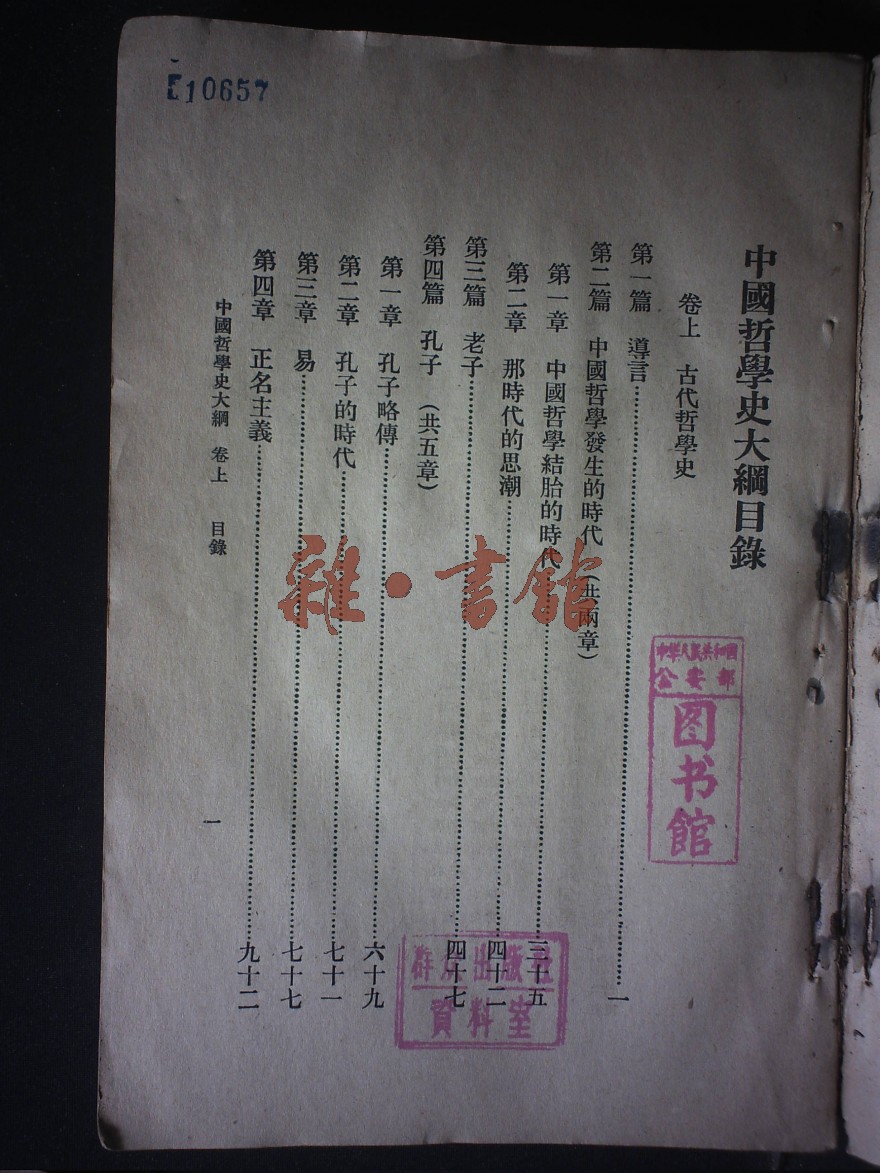 10657
中國哲學史大綱目錄
卷上 古代哲學史
第一篇 導言…………一
第二篇 中國哲學發生的時代 (共兩章)
第一章 中國哲學結胎的時代…………三十五
第二章 那時代的思潮…………四十二
第三篇 老子…………四十七
第四篇 孔子 (共五章)
第一章 孔子略傳…………六十九
第二章 孔子的時代…………七十一
第三章 易…………七十七
第四章 正名主義…………九十二
中國哲學史大綱 卷上 目錄
一
中华人民共和国
公安部
图书馆
群众出版社
資料室
雜·書館